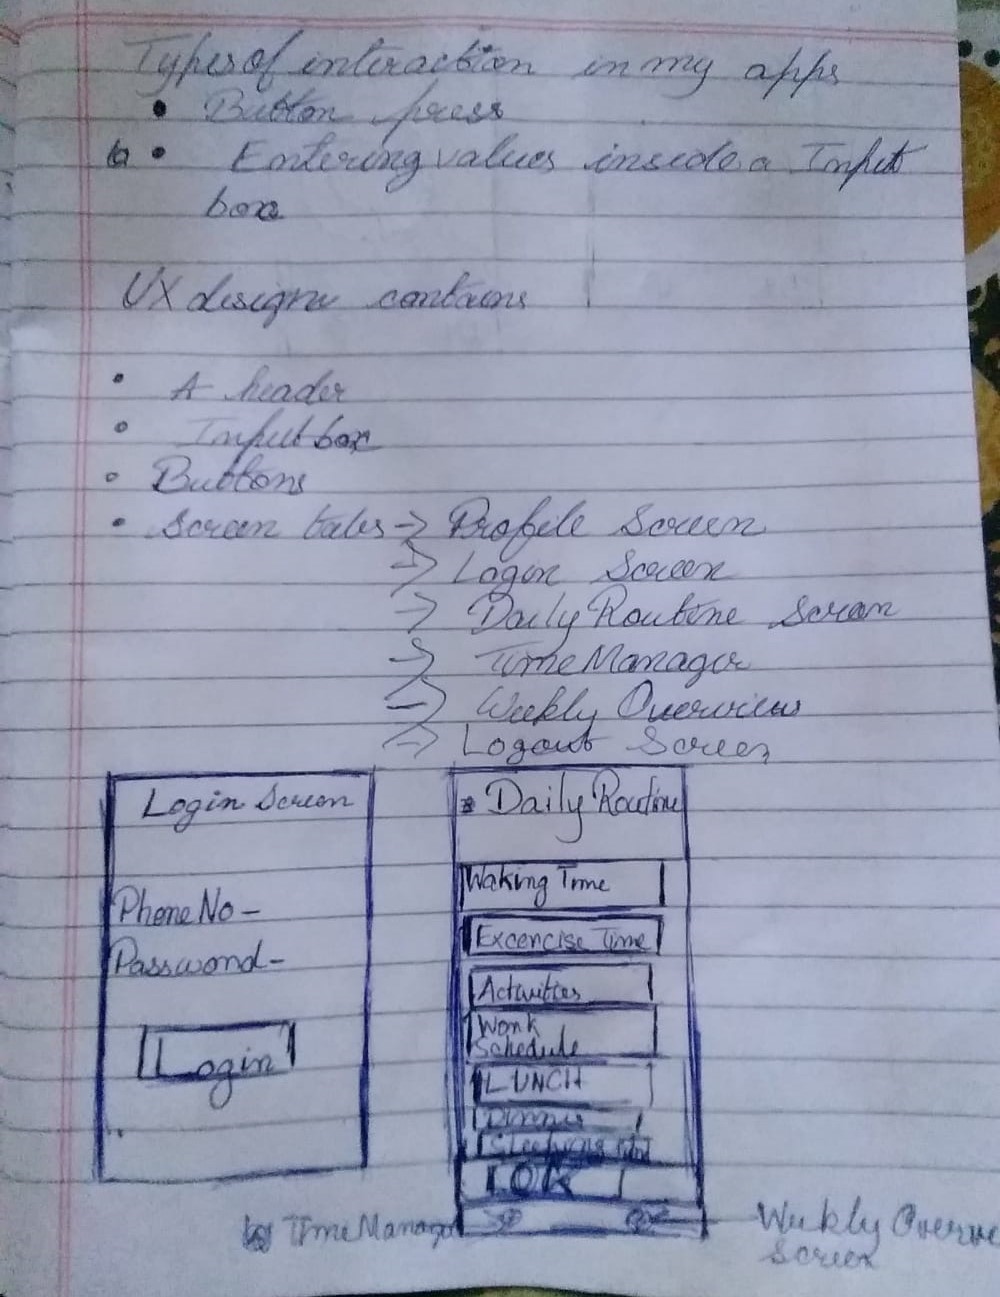 Types of interaction in my apps
• Button press
• Entering values inside a Input
box
UX design contains
• A header
• Input box
• Buttons
• Screen tabs -> Profile Screen
-> Login Screen
-> Daily Routine Screen
-> Time Manager
-> Weekly Overview
-> Logout Screen
Login Screen
Phone No -
Password -
Login
Daily Routine
Waking Time
Excercise Time
Activities
Work
Schedule
LUNCH
Dinner
Sleeping
OK
Time Manager
Weekly Overvie
Screen